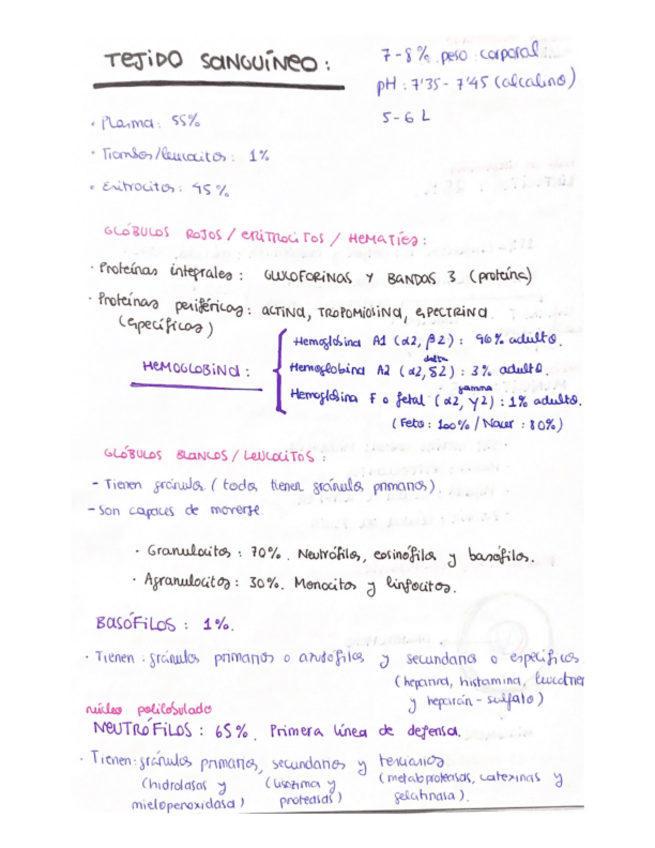 TEJIDO SANGUÍNEO:
7-8% peso corporal
pH: 7'35 - 7'45 (alcalino)
5-6 L
· Plasma: 55%
· Trombos/leucocitos: 1%
· Eritrocitos: 45%
GLÓBULOS ROJOS / ERITROCITOS / HEMATÍES:
· Proteínas integrales: GLICOFORINAS Y BANDAS 3 (proteína)
· Proteínas periféricas: ACTINA, TROPOMIOSINA, ESPECTRINA
(específicas)
HEMOGLOBINA:
Hemoglobina A1 (α2, β2): 96% adulto.
delta
Hemoglobina A2 (α2, δ2): 3% adulto.
gamma
Hemoglobina F o fetal (α2, γ2): 1% adulto.
(Feto: 100% / Nacer: 80%)
GLÓBULOS BLANCOS / LEUCOCITOS:
- Tienen gránulos (todos tienen gránulos primarios)
- Son capaces de moverse.
· Granulocitos: 70%. Neutrófilos, eosinófilos y basófilos.
· Agranulocitos: 30%. Monocitos y linfocitos.
BASÓFILOS: 1%.
· Tienen: gránulos primarios o azurófilos y secundarios o específicos
(heparina, histamina, leucotrie
y heparán-sulfato)
núcleo polilobulado
NEUTRÓFILOS: 65%. Primera línea de defensa.
· Tienen: gránulos primarios, secundarios y terciarios
(hidrolasas y
mieloperoxidasa)
(lisozima y
proteasas)
(metaloproteasas, catexinas y
gelatinasa).